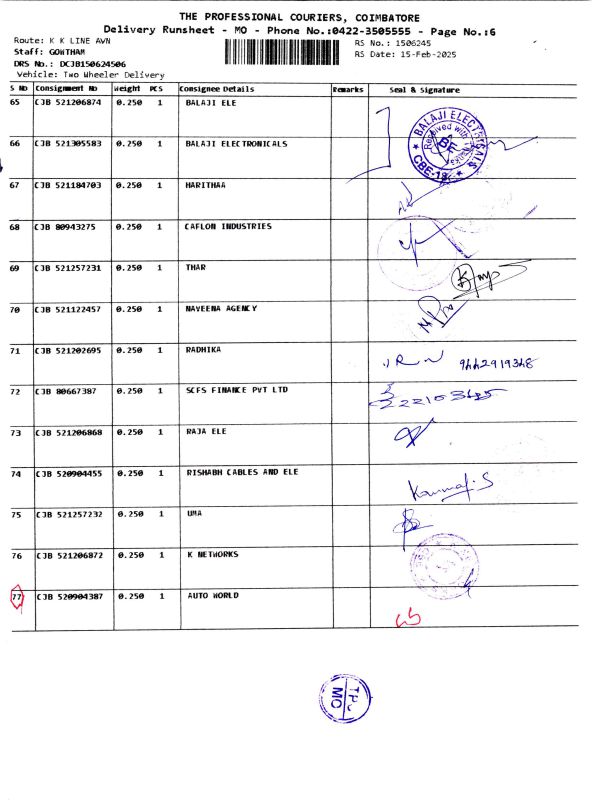 THE PROFESSIONAL COURIERS, COIMBATORE
Delivery Runsheet - MO - Phone No.:0422-3505555 - Page No.:6
Route: K K LINE AVN
RS No.: 1506245
Staff: GOWTHAM
RS Date: 15-Feb-2025
DRS No.: DCJB150624506
Vehicle: Two Wheeler Delivery
S NO Consignment No Weight PCS Consignee Details Remarks Seal & Signature
65 CJB 521206874 0.250 1 BALAJI ELE
66 CJB 521305583 0.250 1 BALAJI ELECTRONICALS
BALAJI ELECTRICALS
Received with
BE
CBE-18
67 CJB 521184703 0.250 1 HARITHAA
68 CJB 80943275 0.250 1 CAFLON INDUSTRIES
69 CJB 521257231 0.250 1 THAR
70 CJB 521122457 0.250 1 NAVEENA AGENCY
71 CJB 521202695 0.250 1 RADHIKA
9442919348
72 CJB 80667387 0.250 1 SCFS FINANCE PVT LTD
73 CJB 521206868 0.250 1 RAJA ELE
74 CJB 520904455 0.250 1 RISHABH CABLES AND ELE
75 CJB 521257232 0.250 1 UMA
76 CJB 521206872 0.250 1 K NETWORKS
77 CJB 520904387 0.250 1 AUTO WORLD
TPC
MO